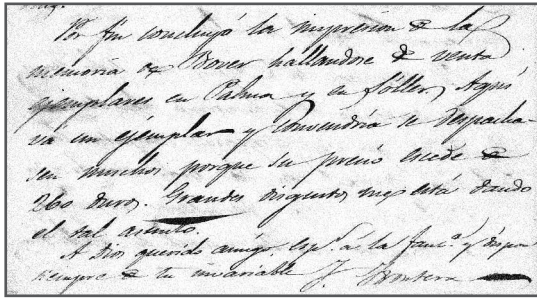 Por fin concluyó la impresion de la
memoria de Bover hallandose de venta
ejemplares en Palma y en Sóller, Aqui
vá un ejemplar y Convendria se despacha-
sen muchos porque su precio escede de
260 duros. Grandes disgustos me está dando
el tal asunto.
A Dios querido amigo, Esp.ˢ a la fam.ª y dispon
siempre de tu invariable J.